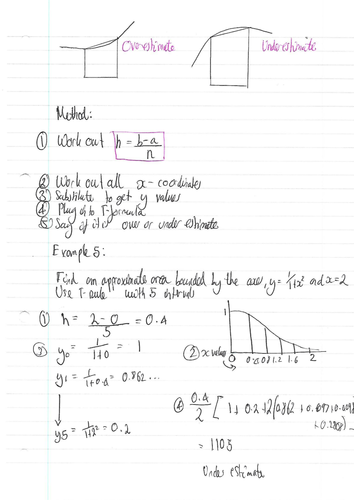 Overestimate
Underestimate
Method:
① Work out h = b-a/n
② Work out all x-coordinates
③ Substitute to get y values
④ Plug into T-formula
⑤ Say if it's over or under estimate
Example 5:
Find an approximate area bounded by the axes, y = 1/1+x² and x=2
Use T-rule with 5 intervals
① h = 2-0/5 = 0.4
③ y₀ = 1/1+0 = 1
② x values
1
0 0.4 0.8 1.2 1.6 2
y₁ = 1/1+0.4² = 0.862 ...
y5 = 1/1+2² = 0.2
④ 0.4/2 [ 1 + 0.2 + 2(0.862 + 0.6097 +
+ 0.2808)
= 1.105
Underestimate